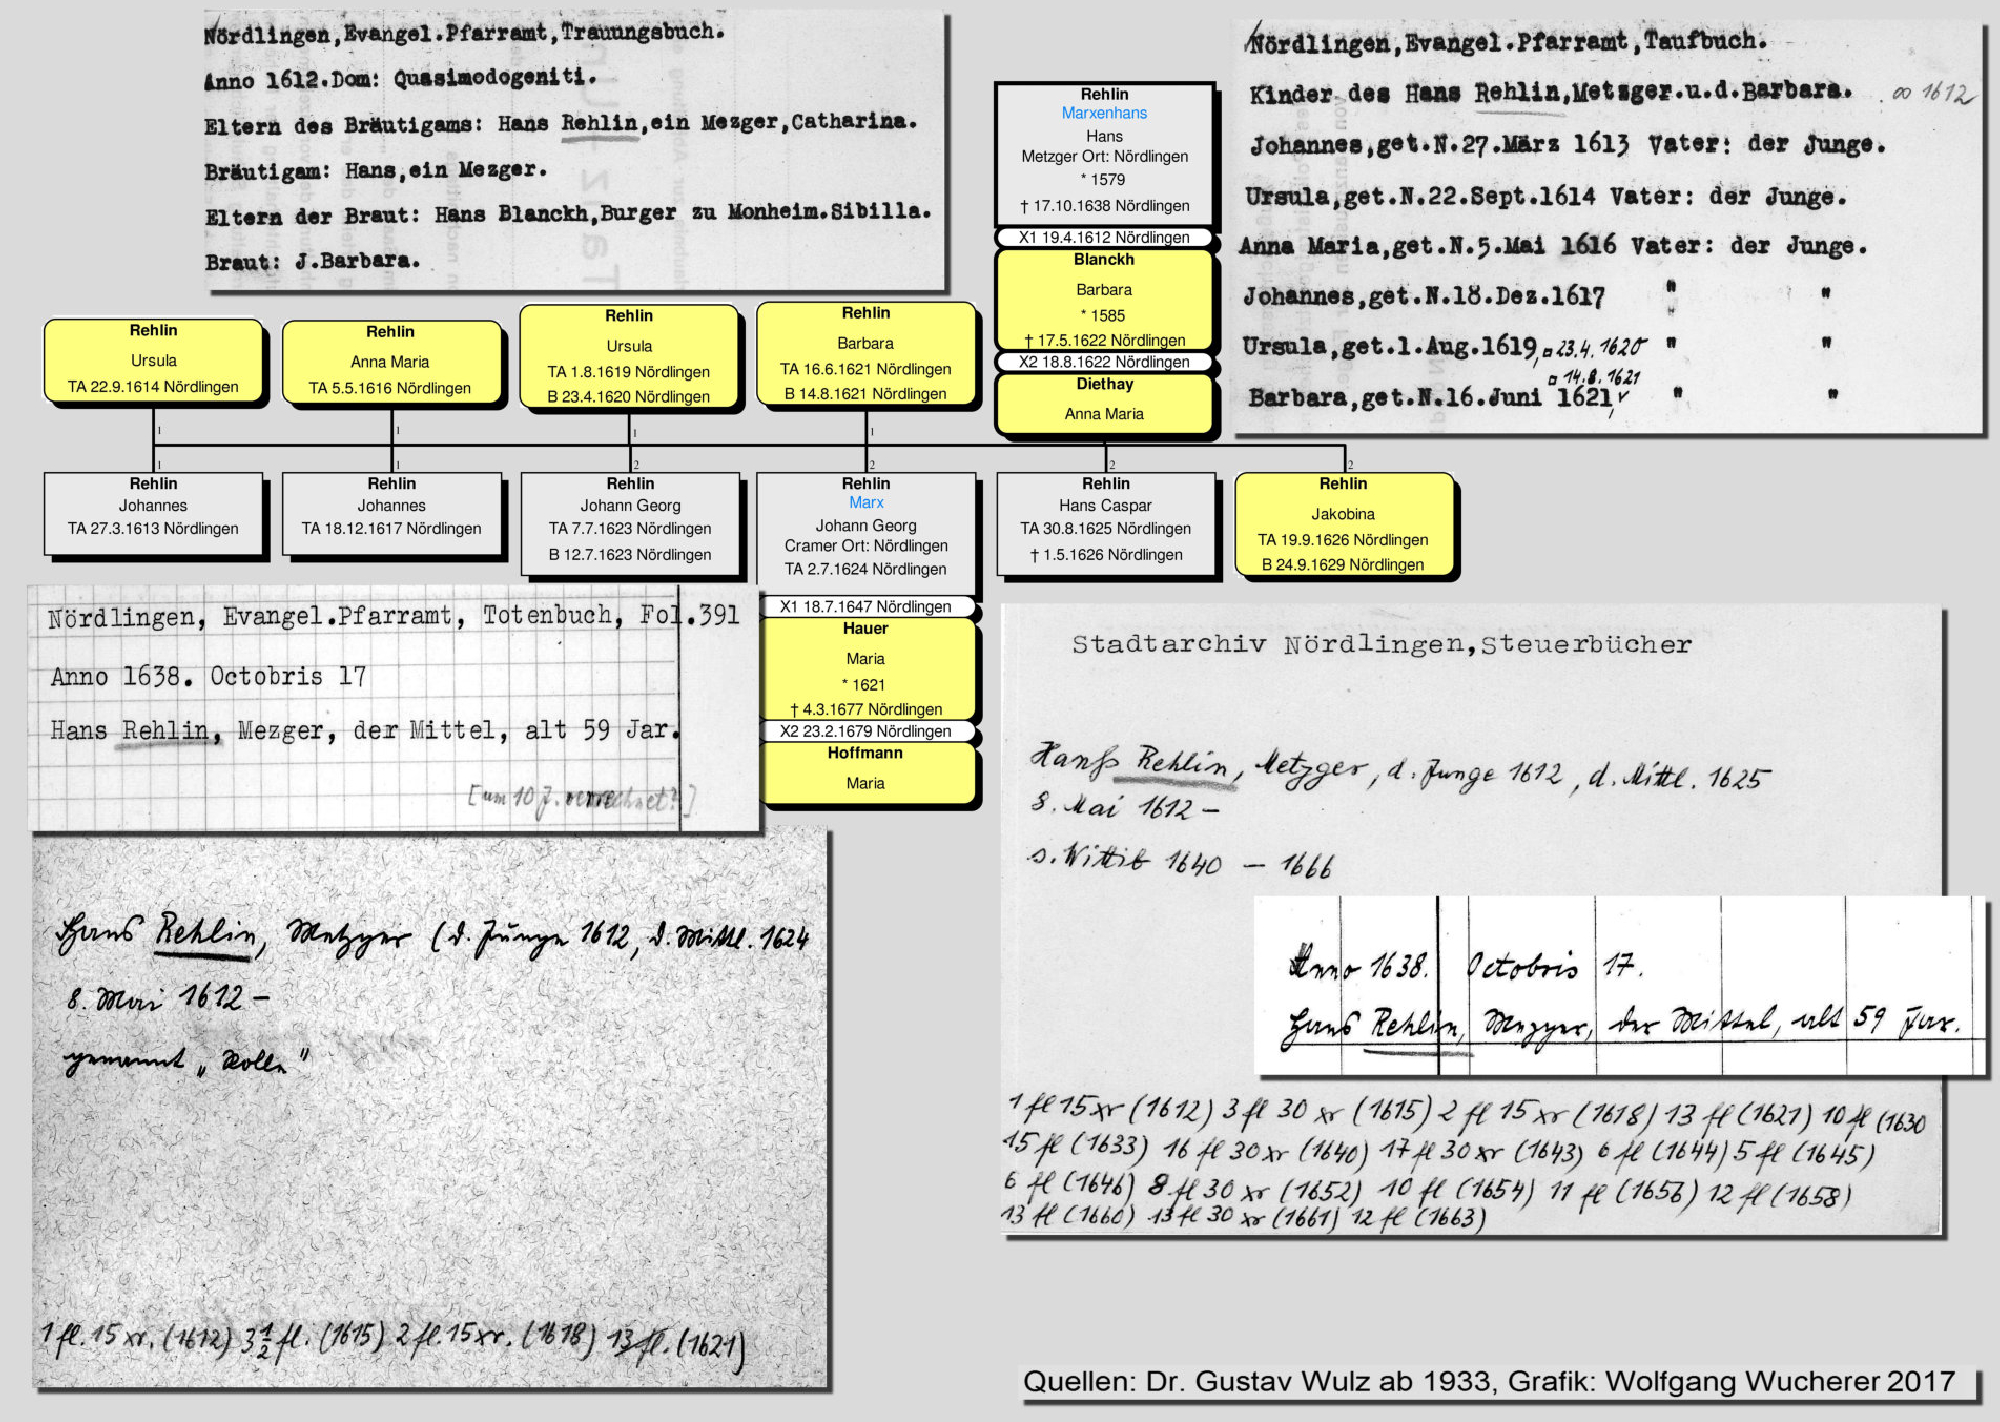 Nördlingen,Evangel.Pfarramt,Trauungsbuch.
Anno 1612.Dom: Quasimodogeniti.
Eltern des Bräutigams: Hans Rehlin,ein Mezger,Catharina.
Bräutigam: Hans,ein Mezger.
Eltern der Braut: Hans Blanckh,Burger zu Monheim.Sibilla.
Braut: J.Barbara.
Rehlin
Marxenhans
Hans
Metzger Ort: Nördlingen
* 1579
† 17.10.1638 Nördlingen
X1 19.4.1612 Nördlingen
Blanckh
Barbara
* 1585
† 17.5.1622 Nördlingen
X2 18.8.1622 Nördlingen
Diethay
Anna Maria
Nördlingen,Evangel.Pfarramt,Taufbuch.
Kinder des Hans Rehlin,Metzger.u.d.Barbara. ∞ 1612
Johannes,get.N.27.März 1613 Vater: der Junge.
Ursula,get.N.22.Sept.1614 Vater: der Junge.
Anna Maria,get.N.5.Mai 1616 Vater: der Junge.
Johannes,get.N.18.Dez.1617 " "
Ursula,get.1.Aug.1619, □ 23.4.1620 " "
□ 14.8.1621
Barbara,get.N.16.Juni 1621, " "
Rehlin
Ursula
TA 22.9.1614 Nördlingen
Rehlin
Anna Maria
TA 5.5.1616 Nördlingen
Rehlin
Ursula
TA 1.8.1619 Nördlingen
B 23.4.1620 Nördlingen
Rehlin
Barbara
TA 16.6.1621 Nördlingen
B 14.8.1621 Nördlingen
1 1 1 1
1 1 2 2 2 2
Rehlin
Johannes
TA 27.3.1613 Nördlingen
Rehlin
Johannes
TA 18.12.1617 Nördlingen
Rehlin
Johann Georg
TA 7.7.1623 Nördlingen
B 12.7.1623 Nördlingen
Rehlin
Marx
Johann Georg
Cramer Ort: Nördlingen
TA 2.7.1624 Nördlingen
X1 18.7.1647 Nördlingen
Hauer
Maria
* 1621
† 4.3.1677 Nördlingen
X2 23.2.1679 Nördlingen
Hoffmann
Maria
Rehlin
Hans Caspar
TA 30.8.1625 Nördlingen
† 1.5.1626 Nördlingen
Rehlin
Jakobina
TA 19.9.1626 Nördlingen
B 24.9.1629 Nördlingen
Nördlingen, Evangel.Pfarramt, Totenbuch, Fol.391
Anno 1638. Octobris 17
Hans Rehlin, Mezger, der Mittel, alt 59 Jar.
[um 10 J. verrechnet?]
Hans Rehlin, Metzger (d. Junge 1612, d. Mittl. 1624
8. Mai 1612 –
genannt „
1 fl. 15 xr. (1612) 3½ fl. (1615) 2 fl. 15 xr. (1618) 13 fl. (1621)
Stadtarchiv Nördlingen,Steuerbücher
Hanß Rehlin, Metzger, d. Junge 1612, d. Mittl. 1625
8. Mai 1612 –
s. Wittib 1640 – 1666
Anno 1638. Octobris 17.
Hans Rehlin, Mezger, der Mittel, alt 59 Jar.
1 fl 15 xr (1612) 3 fl 30 xr (1615) 2 fl 15 xr (1618) 13 fl (1621) 10 fl (1630
15 fl (1633) 16 fl 30 xr (1640) 17 fl 30 xr (1643) 6 fl (1644) 5 fl (1645)
6 fl (1646) 8 fl 30 xr (1652) 10 fl (1654) 11 fl (1656) 12 fl (1658)
13 fl (1660) 13 fl 30 xr (1661) 12 fl (1663)
Quellen: Dr. Gustav Wulz ab 1933, Grafik: Wolfgang Wucherer 2017